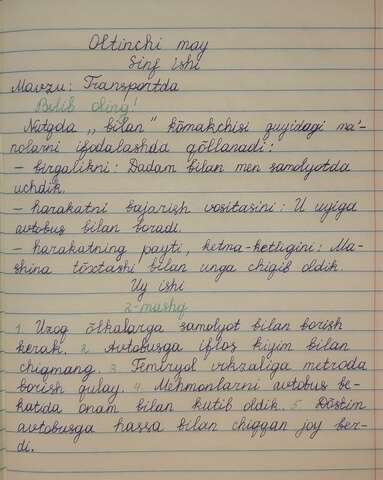 Oltinchi may
Sinf ishi
Mavzu: Transportda
Bilib oling!
Nutqda „bilan" kõmakchisi quyidagi ma'-
nolarni ifodalashda qõllanadi:
– birgalikni: Dadam bilan men samolyotda
uchdik.
– harakatni bajarish vositasini: U uyiga
avtobus bilan boradi.
– harakatning payti, ketma-ketligini: Ma-
shina tõxtashi bilan unga chiqib oldik.
Uy ishi
2-mashq
1. Uzoq õlkalarga samolyot bilan borish
kerak. 2. Avtobusga iflos kiyim bilan
chiqmang. 3. Temiryol vokzaliga metroda
borish qulay. 4. Mehmonlarni avtobus be-
katida onam bilan kutib oldik. 5. Dõstim
avtobusga hassa bilan chiqqan joy ber-
di.